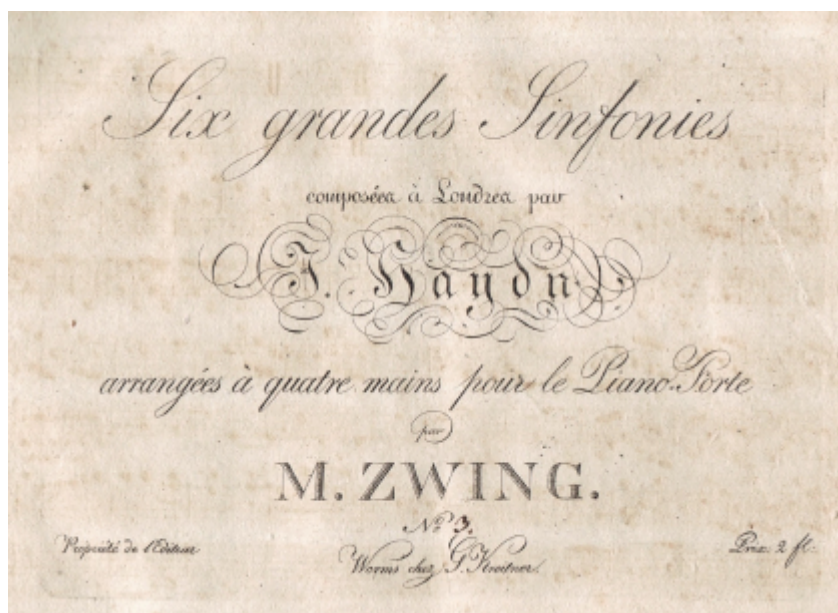 Six grandes Sinfonies
composées à Londres par
J. Haydn
arrangées à quatre mains pour le Piano-Forte
par
M. ZWING.
Nº 3.
Propriété de l'Editeur
Worms chez G. Kreitner.
Prix 2 fl.